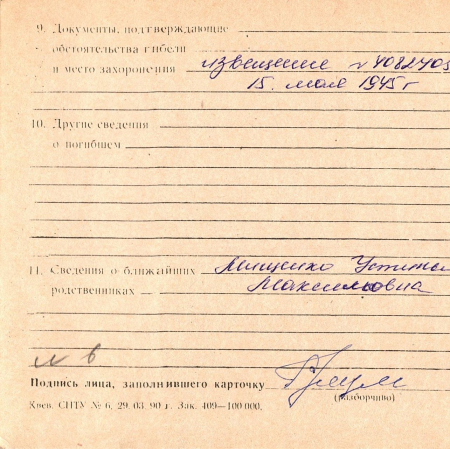 9. Документы, подтверждающие
обстоятельства гибели
и место захоронения извещение № 4082403
15. мая 1945 г
10. Другие сведения
о погибшем
11. Сведения о ближайших Мищенко
родственниках Максимовна
N 6
Подпись лица, заполнившего карточку
(разборчиво)
Киев. СПТУ № 6, 29. 03. 90 г. Зак. 409—100 000.